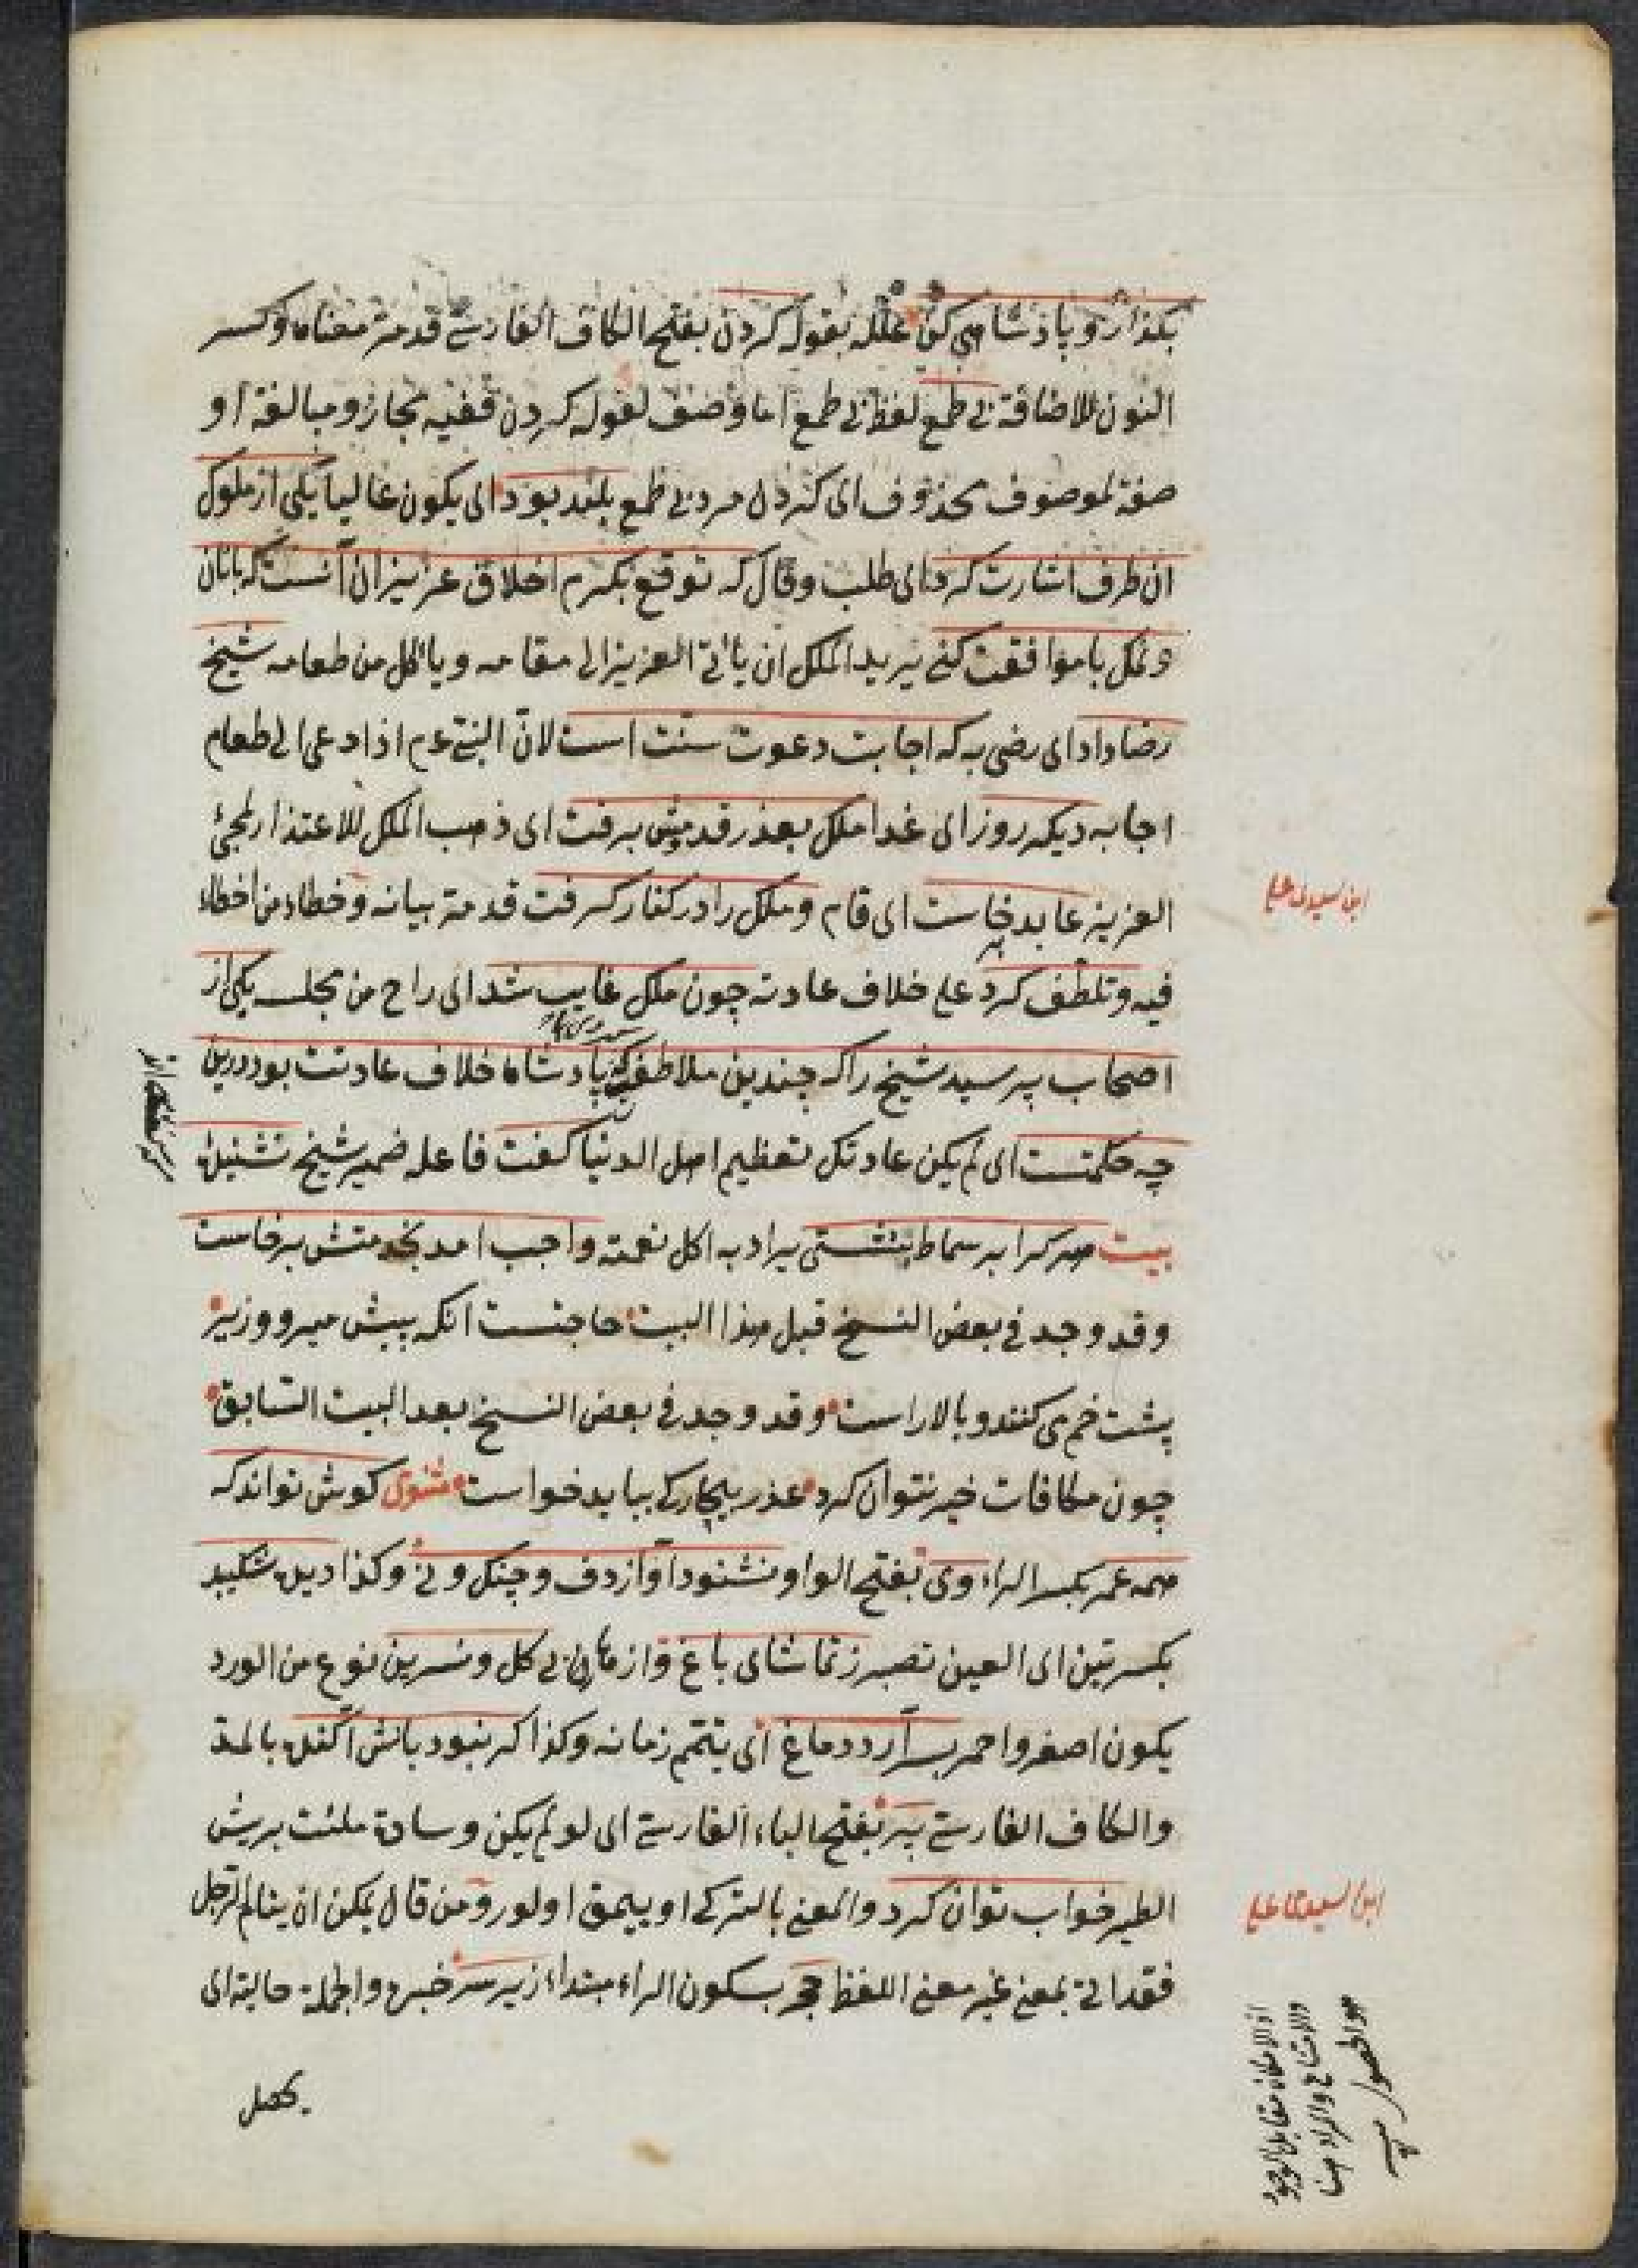 بكذار وپادشاهی كن علله بقوله كردن بفتح الكاف الفارسی قد مر معناه وكسر
النون للاضافة بی طمع لفظ بی طمع اما وصف لقوله كردن ففيه مجاز ومبالغة او
صفة لموصوف محذوف ای كردن مرد بی طمع بلند بود ای يكون عاليا يكی از ملوك
ان طرف اشارت كرد ای طلب وقال كه توقع بكرم اخلاق عزيزان آنست كه بانان
ونمك با موافقت كنی يريد الملك ان يأتی العزيز الی مقامه ويأكل من طعامه شيخ
رضا داد ای رضی به كه اجابت دعوت سنت است لان النبی عم اذا دعی الی طعام
اجابه ديكر روز ای غدا ملك بعذر قدومش برفت ای ذهب الملك للاعتذار لمجئ
العزيز عابد برخاست ای قام وملك را در كنار كرفت قد مر بيانه وخطاء من اخطاء
فيه وتلطف كرد علی خلاف عادته چون ملك غايب شد ای راح من مجلسه يكی از
اصحاب پرسيد شيخ را كه چندين ملاطفت كه با پادشاه خلاف عادت بود درين
چه حكمتست ای لم يكن عادتك تعظيم اهل الدنيا كفت فاعله ضمير شيخ نشنيده
بيت هر كرا بر سماط بنشستی يراد به اكل نعمته واجب امد بخدمتش برخاست
وقد وجد فی بعض النسخ قبل هذا البيت حاجتست انكه پيش مير ووزير
پشت خم می كنند وبالا راست وقد وجد فی بعض النسخ بعد البيت السابق
چون مكافات خير نتوان كرد عذر بيچاركی ببايد خواست مثنوی كوش تواند كه
همه عمر بكسر الراء وی بفتح الواو نشنود آواز دف وچنك ونی وكذا ديده شكيبد
بكسرتين ای العين تصبر ز تماشای باغ واز بی كل ونسرين نوع من الورد
يكون اصفر واحمر بسر آرد دماغ ای يتمم زمانه وكذا كر نبود بالش آكنده بالمد
والكاف الفارسی پر بفتح الباء الفارسی ای لو لم يكن وسادة ملئت بريش
الطير خواب توان كرد والمعنی بالتركی اويمق اولور ومن قال يمكن ان ينام الرجل
فقد اتی بمعنی غير معنی اللفظ حجر بسكون الراء مبتداء زير سر خبره والجملة حالية ای
يحصل
ابن سيدی علی
ابن السيد علی